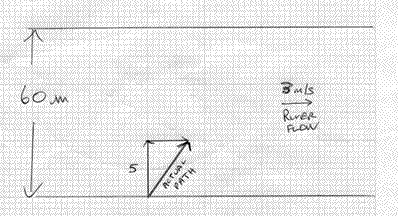 60 m
3 m/s
RIVER
FLOW
5
ACTUAL
PATH